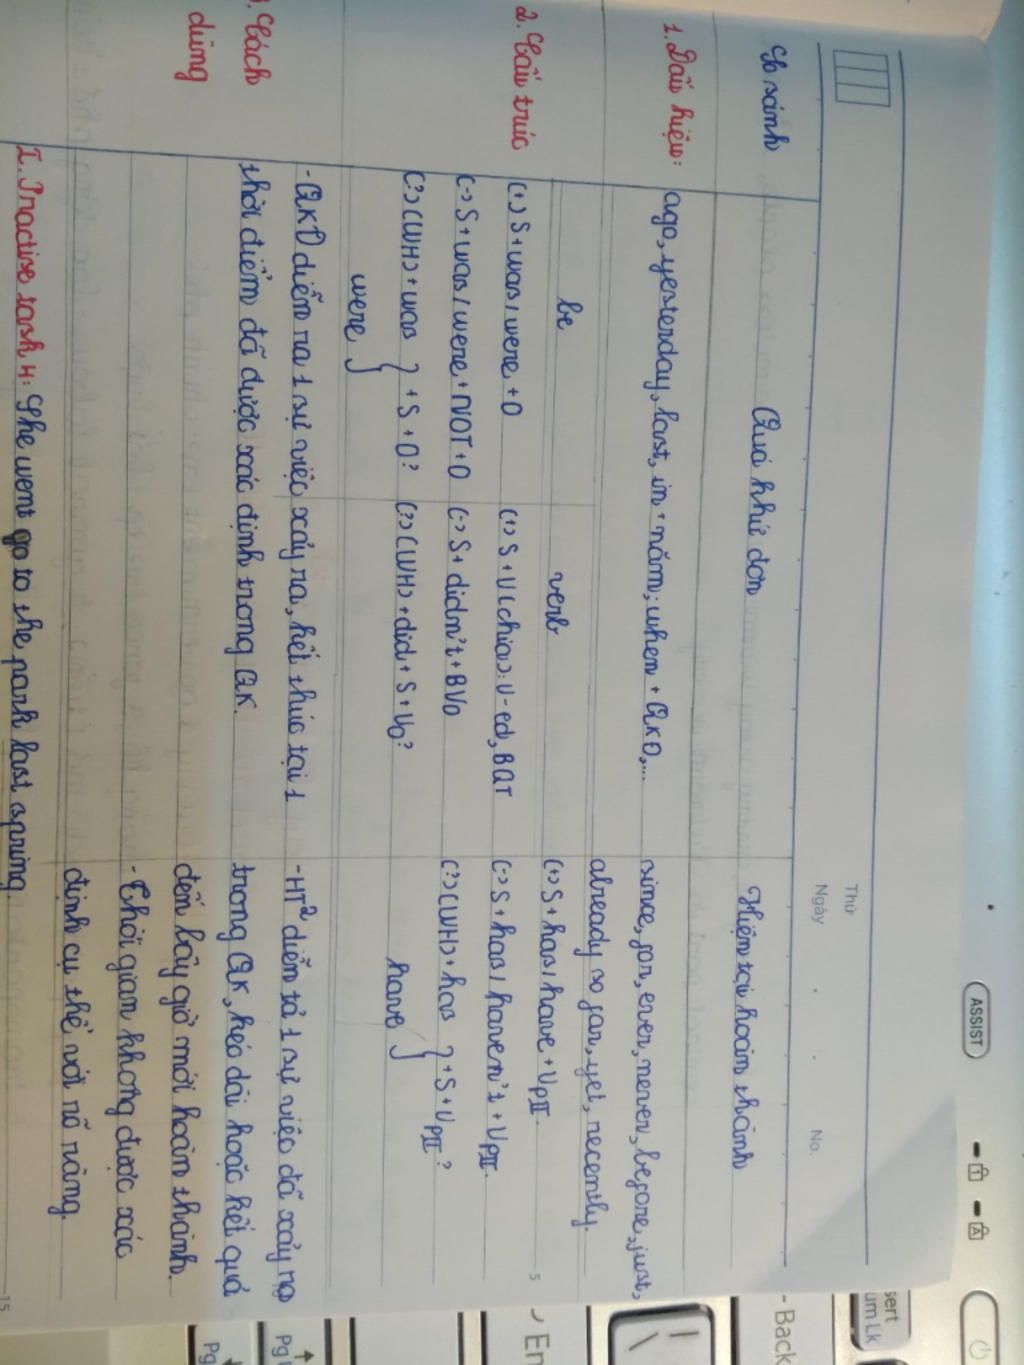 Thứ
Ngày . . No.
So sánh Quá khứ đơn Hiện tại hoàn thành
1. Dấu hiệu: ago, yesterday, last, in + năm, when + QKĐ,... since, for, ever, never, before, just,
already so far, yet, recently.
be verb
2. Cấu trúc (+) S + was / were + O (+) S + V (chia): V-ed, BQT (+) S + has / have + VPII.
(-) S + was / were + NOT + O (-) S + didn't + BV0 (-) S + has / haven't + VPII.
(?) (WH) + was } + S + O? (?) (WH) + did + S + V0? (?) (WH) + has } + S + VPII?
were have
. Cách dùng
- QKĐ diễn ra 1 sự việc xảy ra, kết thúc tại 1
thời điểm đã được xác định trong QK.
- HT² diễn tả 1 sự việc đã xảy ra
trong QK, kéo dài hoặc kết quả
đến bây giờ mới hoàn thành.
- Thời gian không được xác
định cụ thể với rõ ràng.
I. Practise task 4: She went go to the park last spring.
ASSIST
sert
um Lk
- Back
5
En
|
\
Pg
Pg
15